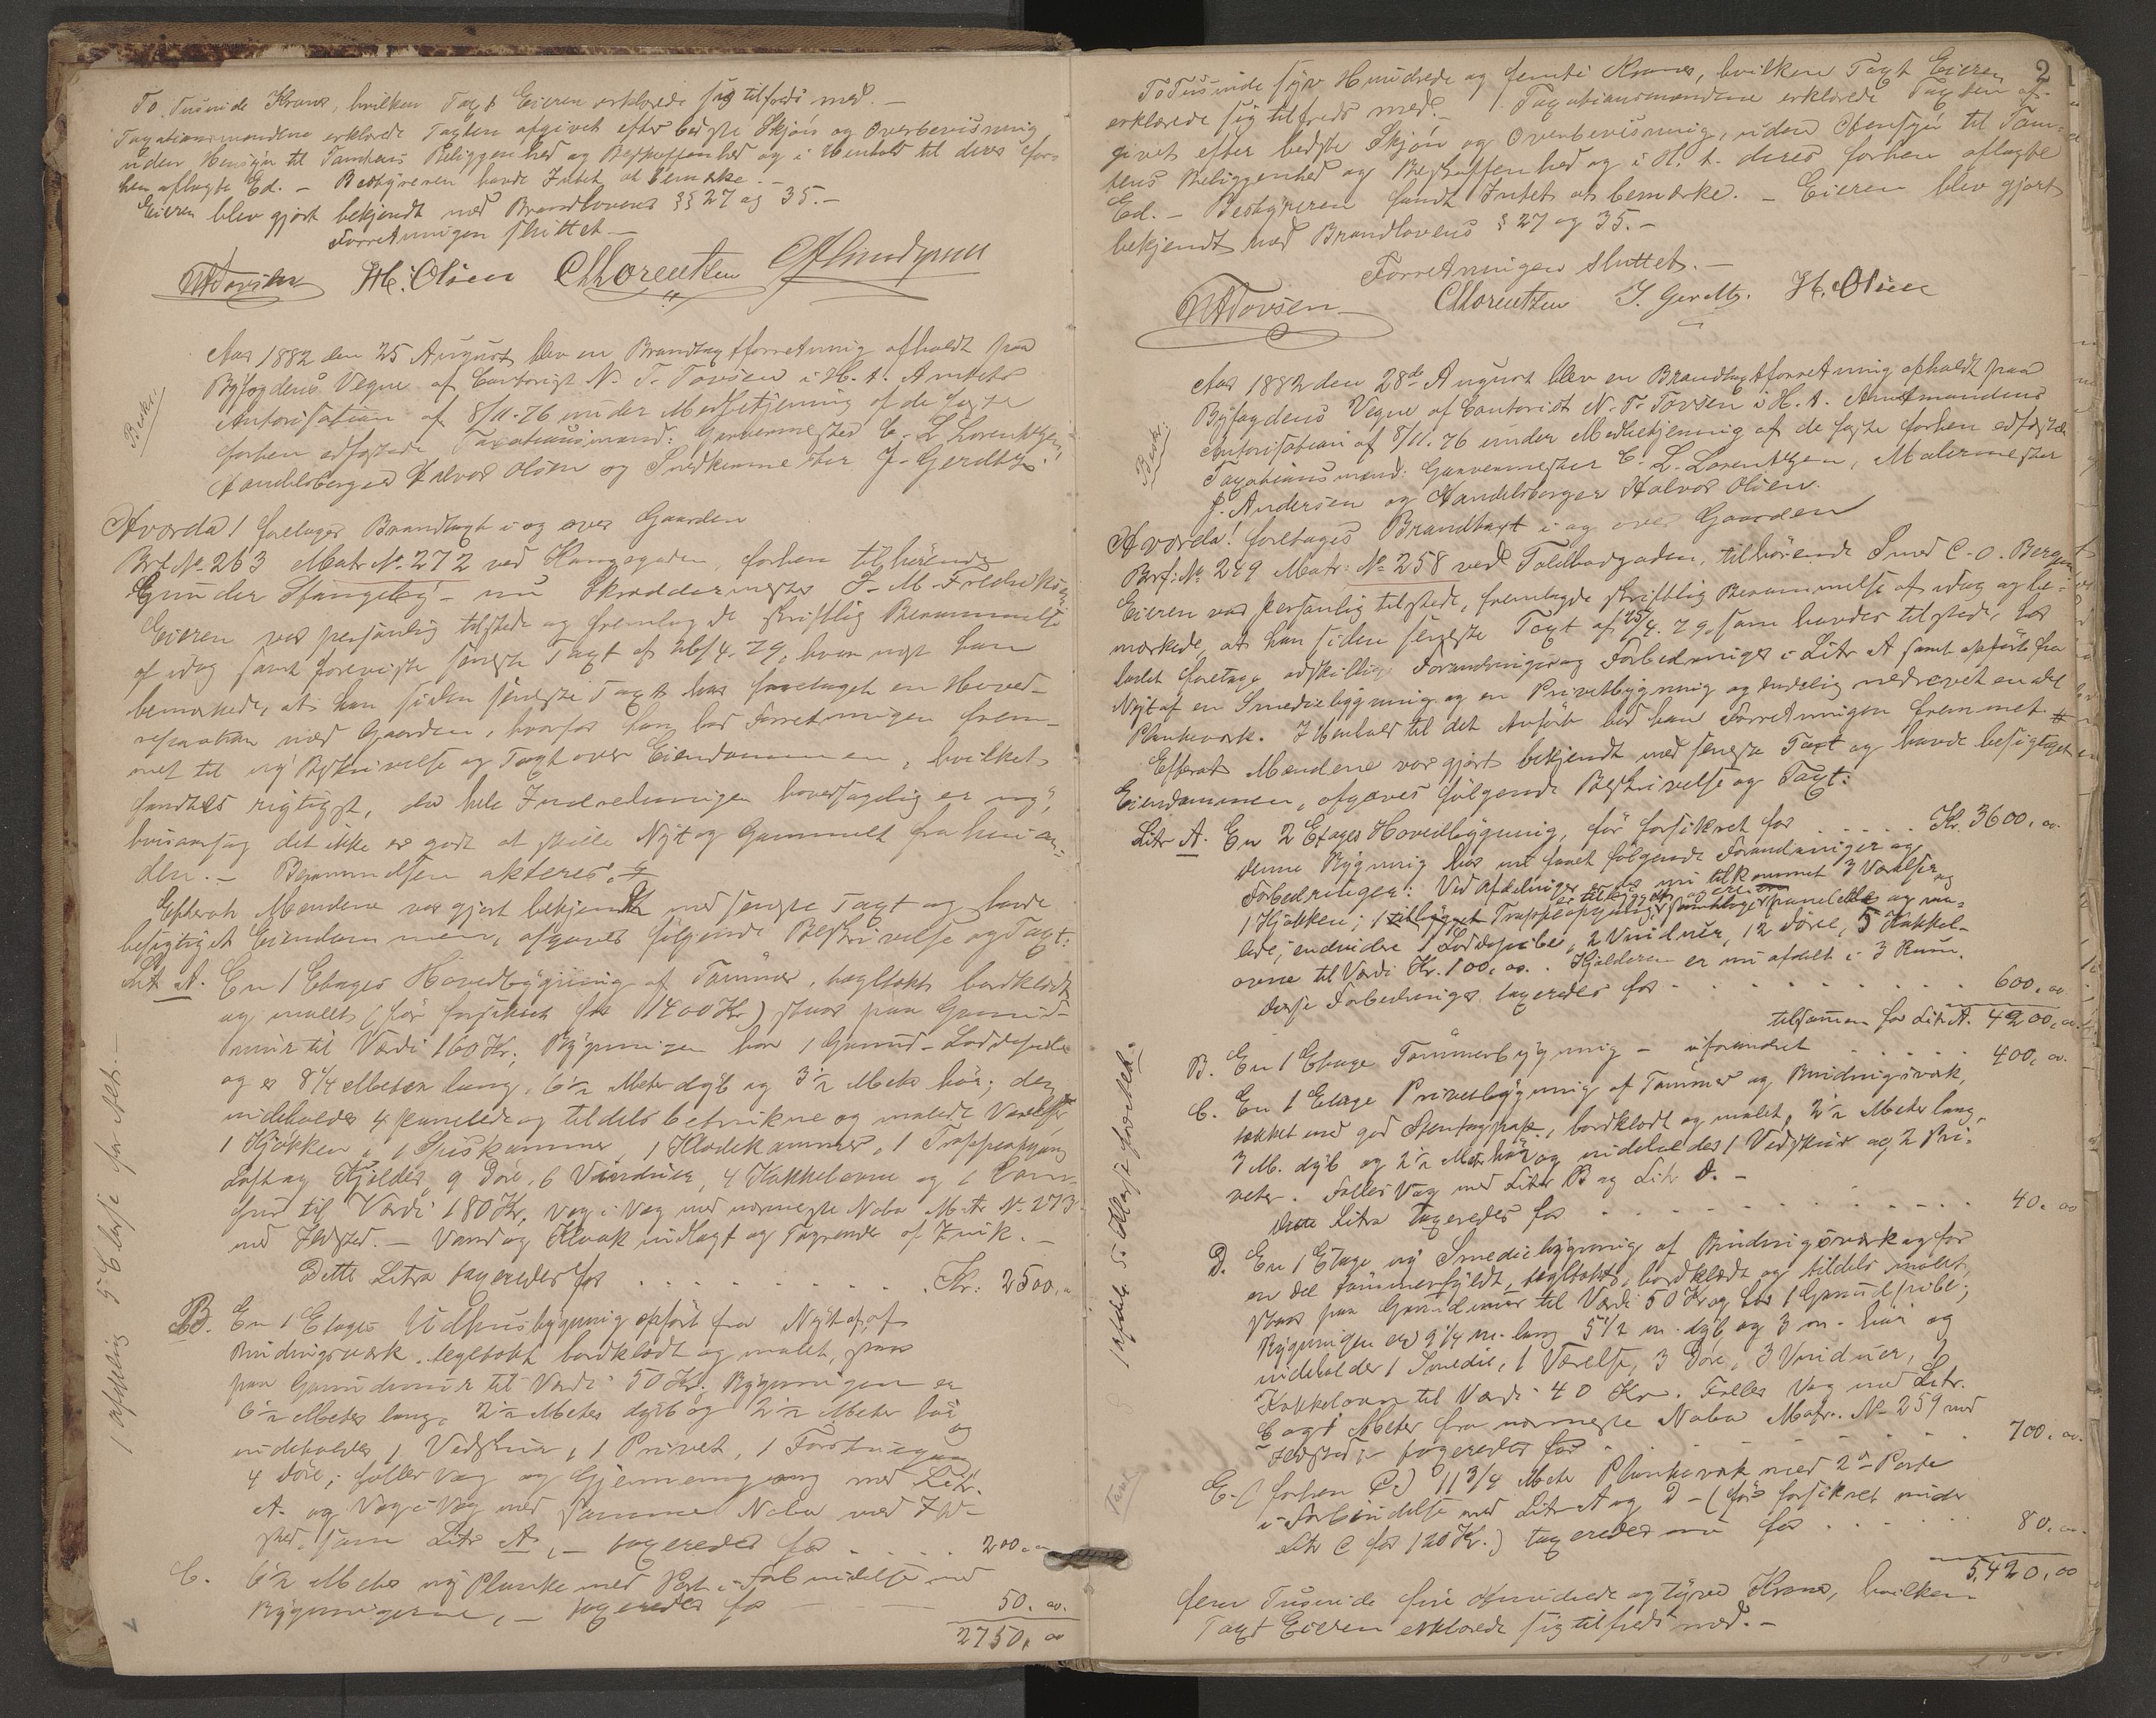 To Tusinde Kroner, hvilken Taxt Eieren erklærede sig tilfreds med. —
Taxationsmændene erklærede Taxten afgivet efter bedste Skjøn og Overbevisning
uden Hensyn til Tomtens Beliggenhed og Beskaffenhed og i Henhold til deres for-
hen aflagte Ed. — Bestyreren havde Intet at bemærke. —
Eieren blev gjort bekjendt med Brandlovens §§ 27 og 35. —
Forretningen sluttet. —
NTTovsen H. Olsen CLLorentzen
Aar 1882 den 25 August blev en Brandtaxtforretning afholdt paa
Byfogdens Vegne af Contorist N. T. Tovsen i H. t. Amtets
Autorisation af 8/11. 76 under Medbetjening af de faste
forhen edfæstede Taxationsmænd: Garvermester C. L. Lorentzen,
Handelsborger Halvor Olsen og Snedkermester J. Gerdtz.
Beskr.
Hvorda! foretages Brandtaxt i og over Gaarden
Brf. No. 263 Matr. No. 272 ved Kongsgaden, forhen tilhørende
Gunder Stangeby — nu Skræddermester J. M. Fredriksen
Eieren var personlig tilstede og fremlagde skriftlig Berammelse
af idag samt foreviste seneste Taxt af 26/4. 79, hvornæst han
bemærkede, at han siden seneste Taxt har foretaget en Hoved-
reparation med Gaarden, hvorfor han bad Forretningen frem-
met til ny Beskrivelse og Taxt over Eiendommen, hvilket
fandtes rigtigst, da hele Indredningen hovedsagelig er ny,
hvisaarsag det ikke er godt at skille Nyt og Gammelt fra hinan-
den. — Berammelsen akteres.
Efterat Mændene var gjort bekjendt med seneste Taxt og havde
besigtiget Eiendommen, afgaves følgende Beskrivelse og Taxt:
Litr A. En 1 Etages Hovedbygning af Tømmer, tegltækt bordklædt
og malet (før forsikret for 1400 Kr) staar paa Grund-
muur til Værdi 160 Kr; Bygningen har 1 Grund- Loddepibe
og er 8 1/4 Meter lang, 6 1/2 Meter dyb og 3 1/2 Meter høi; den
indeholder 4 panelede og tildels betrukne og malede Værelser
1 Kjøkken, 1 Spiskammer, 1 Klædekammer, 1 Trappeopgang
Loft og Kjælder, 9 Døre, 6 Vinduer, 4 Kakkelovne og 1 Kom-
fur til Værdi 180 Kr, Væg i Væg med nærmeste Nabo Matr No. 273
med Ildsted. — Vand og Kloak indlagt og Tagrender af Zink. —
Dette Litra taxeredes for . . . . Kr: 2500,00
B. En 1 Etages Udhusbygning opført fra Nyt af, af
Bindingsværk, tegltækt bordklædt og malet, staar
paa Grundmuur til Værdi 50 Kr; Bygningen er
6 1/2 Meter lang, 2 1/2 Meter dyb og 2 1/2 Meter høi og
indeholder 1 Vedskuur, 1 Privet, 1 Forstuegang
4 Døre; fælles Væg og Gjennemgang med Litr.
A. og Væg i Væg med samme Nabo med Ild-
sted, som Litr A, — taxeredes for . . . . 200,00
C. 6 1/2 Meter ny Planke med Port i Forbindelse med
Bygningerne, — taxeredes for 50,00.
2750,00
1 Afdeling 5te Classe for Alt. —
2
To Tusinde syv Hundrede og femti Kroner, hvilken Taxt Eieren
erklærede sig tilfreds med. — Taxationsmændene erklærede Taxten af-
givet efter bedste Skjøn og Overbevisning, uden Hensyn til Tom-
tens Beliggenhed og Beskaffenhed og i H. t. deres forhen aflagte
Ed. — Bestyreren fandt Intet at bemærke. — Eieren blev gjort
bekjendt med Brandlovens § 27 og 35. —
Forretningen sluttet. —
NTTovsen CLLorentzen J. Gerdtz. H. Olsen
Aar 1882 den 28de August blev en Brandtaxtforretning afholdt paa
Byfogdens Vegne af Contorist N. T. Tovsen i H. t. Amtmandens
Autorisation af 8/11. 76 under Medbetjening af de faste forhen edfæstede
Taxationsmænd: Garvermester C. L. Lorentzen, Malermester
J. Andersen og Handelsborger Halvor Olsen.
Beskr.
Hvorda! foretages Brandtaxt i og over Gaarden
Brf: No. 249 Matr: No. 258 ved Toldbodgaden, tilhørende Smed C. O. Bergen
Eieren var personlig tilstede, fremlagde skriftlig Berammelse af idag og be-
mærkede, at han siden seneste Taxt af 25/4. 79, som havdes tilstede, har
ladet foretage adskillige Forandringer og Forbedringer i Litr A samt opført fra
Nyt af en Smediebygning og en Privetbygning og endelig nedrevet en del
Plankeværk. I Henhold til det Anførte bad han Forretningen fremmet.
Efterat Mændene var gjort bekjendt med seneste Taxt og havde besigtiget
Eiendommen, afgaves følgende Beskrivelse og Taxt:
Litr A. En 2 Etages Hovedbygning, før forsikret for . . . . Kr. 3600,00.
Denne Bygning har nu faaet følgende Forandringer og
Forbedringer: Ved Afdelinger er der nu tilkommet 3 Værelser og
1 Kjøkken; 1 Trappeopgang panelede og ma-
lede, endvidere 1 Loddepibe, 2 Vinduer, 12 Døre, 5 Kakkel-
ovne til Værdi Kr. 100,00. Kjælderen er nu afdelt i 3 Rum.
Disse Forbedringer taxeredes for . . . . 600,00
tilsammen for Litr A. 4200,00.
B. En 1 Etage Tømmerbygning — uforandret . . . . 400,00.
C. En 1 Etage Privetbygning af Tømmer og Bindingsværk,
tækket med god Stentagpap, bordklædt og malet, 2 1/2 Meter lang,
3 M. dyb og 2 1/2 Meter høi og indeholder 1 Vedskuur og 2 Pri-
veter. Fælles Væg med Litr B og Litr D. —
Dette Litra taxeredes for . . . . 40,00
D. En 1 Etage ny Smediebygning af Bindingsværk og for
en del tømmerfyldt, tegltækt, bordklædt og tildels malet,
staar paa Grundmuur til Værdi 50 Kr og har 1 Grundpibe;
Bygningen er 9 1/4 m. lang 5 1/2 m. dyb og 3 m. høi og
indeholder 1 Smedie, 1 Værelse, 3 Døre, 3 Vinduer, 1
Kakkelovn til Værdi 40 Kr. Fælles Væg med Litr.
C og 1 Meter fra nærmeste Nabo Matr. No. 259 med
Ildsted; — taxeredes for . . . . 700,00.
E. (forhen C.) 11 3/4 Meter Plankeværk med 2de Porte
i Forbindelse med Litr A og D — (før forsikret under
Litr C for 120 Kr.) taxeredes nu for . . . . 80,00.
5,420,00
fem Tusinde fire Hundrede og tyve Kroner, hvilken
Taxt Eieren erklærede sig tilfreds med. —
1 Afdeli. 5te Classe for Alt.